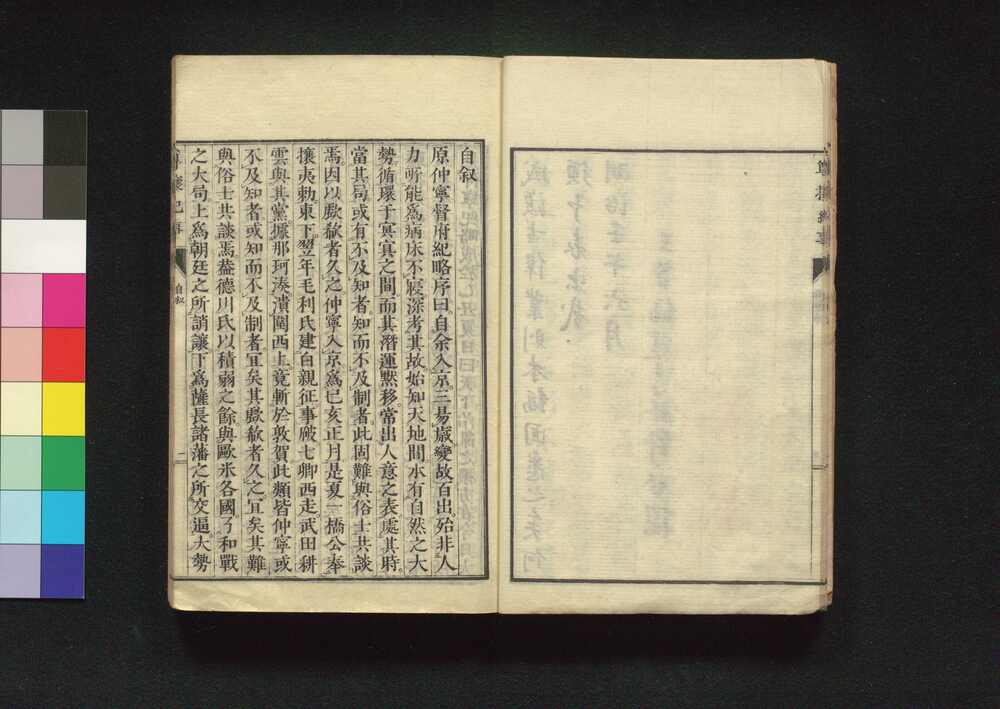 自叙
原仲寧督府紀略序曰。自余入京。三易歳。變故百出。殆非人
力所能爲。病床不寝。深考其故。始知天地間亦有自然之大
勢循環于冥冥之間。而其潛運默移。常出人意之表。處其時。
當其局。或有不及知者。知而不及制者。此固難與俗士共談
焉。因以歔欷者久之。仲寧入京。爲己亥正月。是夏一橋公奉
攘夷勅東下。翌年毛利氏建白親征事。廠七卿西走。武田耕
雲與其黨。據那珂湊。潰圍西上。竟斬於敦賀。此類皆仲寧或
不及知者。或知而不及制者。宜矣其歔欷者久之。宜矣其難
與俗士共談焉。葢德川氏以積弱之餘。與歐米各國了和戰
之大局。上爲朝廷之所誚讓。下爲薩長諸藩之所交逼。大勢
自叙
二